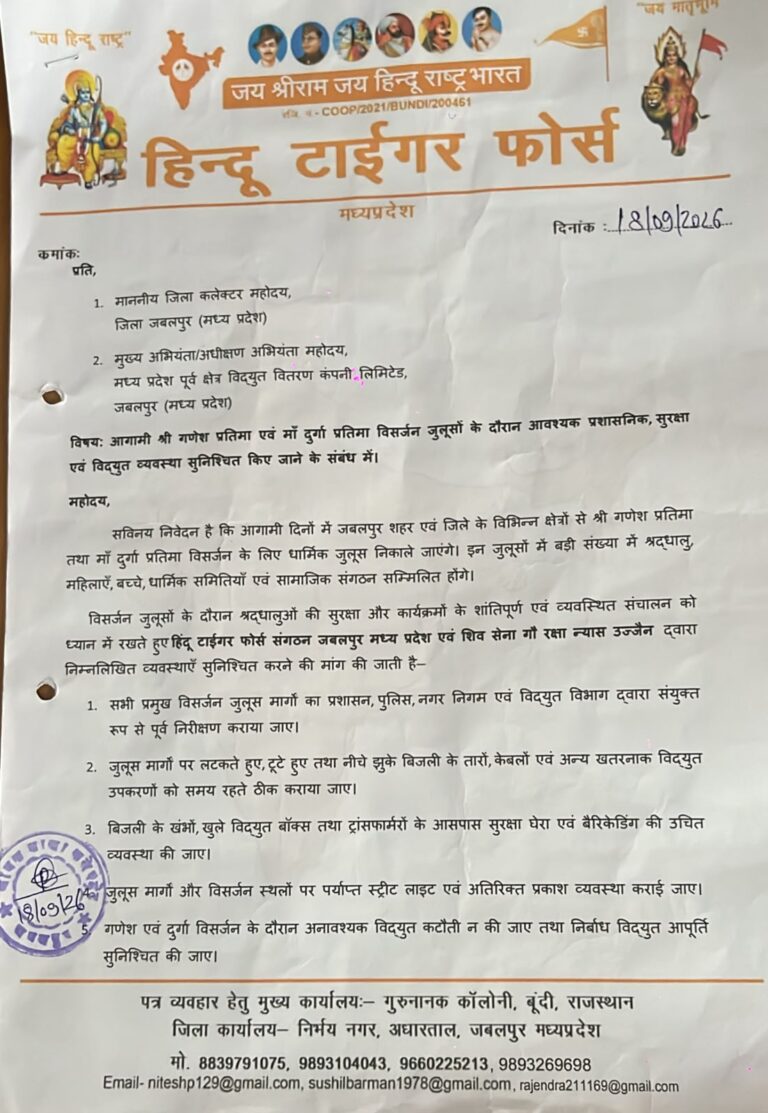 "जय हिन्दू राष्ट्र"
"जय मातृभूमि
जय श्रीराम जय हिन्दू राष्ट्र भारत
रजि. नं - COOP/2021/BUNDI/200461
हिन्दू टाईगर फोर्स
मध्यप्रदेश
दिनांक :- 18/09/2026
कमांक:
प्रति,
1. माननीय जिला कलेक्टर महोदय,
जिला जबलपुर (मध्य प्रदेश)
2. मुख्य अभियंता/अधीक्षण अभियंता महोदय,
मध्य प्रदेश पूर्व क्षेत्र विद्युत वितरण कंपनी लिमिटेड,
जबलपुर (मध्य प्रदेश)
विषय: आगामी श्री गणेश प्रतिमा एवं माँ दुर्गा प्रतिमा विसर्जन जुलूसों के दौरान आवश्यक प्रशासनिक, सुरक्षा
एवं विद्युत व्यवस्था सुनिश्चित किए जाने के संबंध में।
महोदय,
सविनय निवेदन है कि आगामी दिनों में जबलपुर शहर एवं जिले के विभिन्न क्षेत्रों से श्री गणेश प्रतिमा
तथा माँ दुर्गा प्रतिमा विसर्जन के लिए धार्मिक जुलूस निकाले जाएंगे। इन जुलूसों में बड़ी संख्या में श्रद्धालु,
महिलाएँ, बच्चे, धार्मिक समितियाँ एवं सामाजिक संगठन सम्मिलित होंगे।
विसर्जन जुलूसों के दौरान श्रद्धालुओं की सुरक्षा और कार्यक्रमों के शांतिपूर्ण एवं व्यवस्थित संचालन को
ध्यान में रखते हुए हिंदू टाईगर फोर्स संगठन जबलपुर मध्य प्रदेश एवं शिव सेना गौ रक्षा न्यास उज्जैन द्वारा
निम्नलिखित व्यवस्थाएँ सुनिश्चित करने की मांग की जाती है–
1. सभी प्रमुख विसर्जन जुलूस मार्गों का प्रशासन, पुलिस, नगर निगम एवं विद्युत विभाग द्वारा संयुक्त
रूप से पूर्व निरीक्षण कराया जाए।
2. जुलूस मार्गों पर लटकते हुए, टूटे हुए तथा नीचे झुके बिजली के तारों, केबलों एवं अन्य खतरनाक विद्युत
उपकरणों को समय रहते ठीक कराया जाए।
3. बिजली के खंभों, खुले विद्युत बॉक्स तथा ट्रांसफार्मरों के आसपास सुरक्षा घेरा एवं बैरिकेडिंग की उचित
व्यवस्था की जाए।
4. जुलूस मार्गों और विसर्जन स्थलों पर पर्याप्त स्ट्रीट लाइट एवं अतिरिक्त प्रकाश व्यवस्था कराई जाए।
18/09/26
5. गणेश एवं दुर्गा विसर्जन के दौरान अनावश्यक विद्युत कटौती न की जाए तथा निर्बाध विद्युत आपूर्ति
सुनिश्चित की जाए।
पत्र व्यवहार हेतु मुख्य कार्यालय:– गुरुनानक कॉलोनी, बूंदी, राजस्थान
जिला कार्यालय– निर्भय नगर, अधारताल, जबलपुर मध्यप्रदेश
मो. 8839791075, 9893104043, 9660225213, 9893269698
Email- niteshp129@gmail.com, sushilbarman1978@gmail.com, rajendra211169@gmail.com